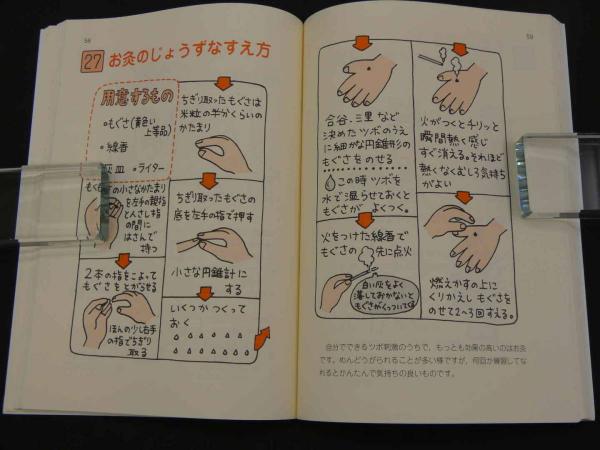 58
27 お灸のじょうずなすえ方
用意するもの
もぐさ(黄色い
上等品)
線香
灰皿 ライター
もぐさの小さなかたまり
を左手の親指
と人さし指
の間に
はさんで
持つ
2本の指をこよって
もぐさをとがらせる
ほんの少し右手
の指でちぎり
取る
ちぎり取ったもぐさは
米粒の半分くらいの
かたまり
ちぎり取ったもぐさの
底を左手の指で押す
小さな円錐計に
する
いくつかつくって
おく
59
合谷、三里など
決めたツボのうえ
に細かな円錐形の
もぐさをのせる
この時ツボを
水で湿らせておくと
もぐさがよくつく。
火をつけた線香で
もぐさの先に点火
白い灰をよく
落しておかないと
もぐさがくっついてくる
火がつくとチリッと
瞬間熱く感じ
すぐ消える。それほど
熱くなくむしろ気持ち
がよい
燃えかすの上に
くりかえしもぐさを
のせて2~3回すえる。
自分でできるツボ刺激のうちで、もっとも効果の高いのはお灸
です。めんどうがられることが多い様ですが、何回か練習してな
れるとかんたんで気持ちの良いものです。